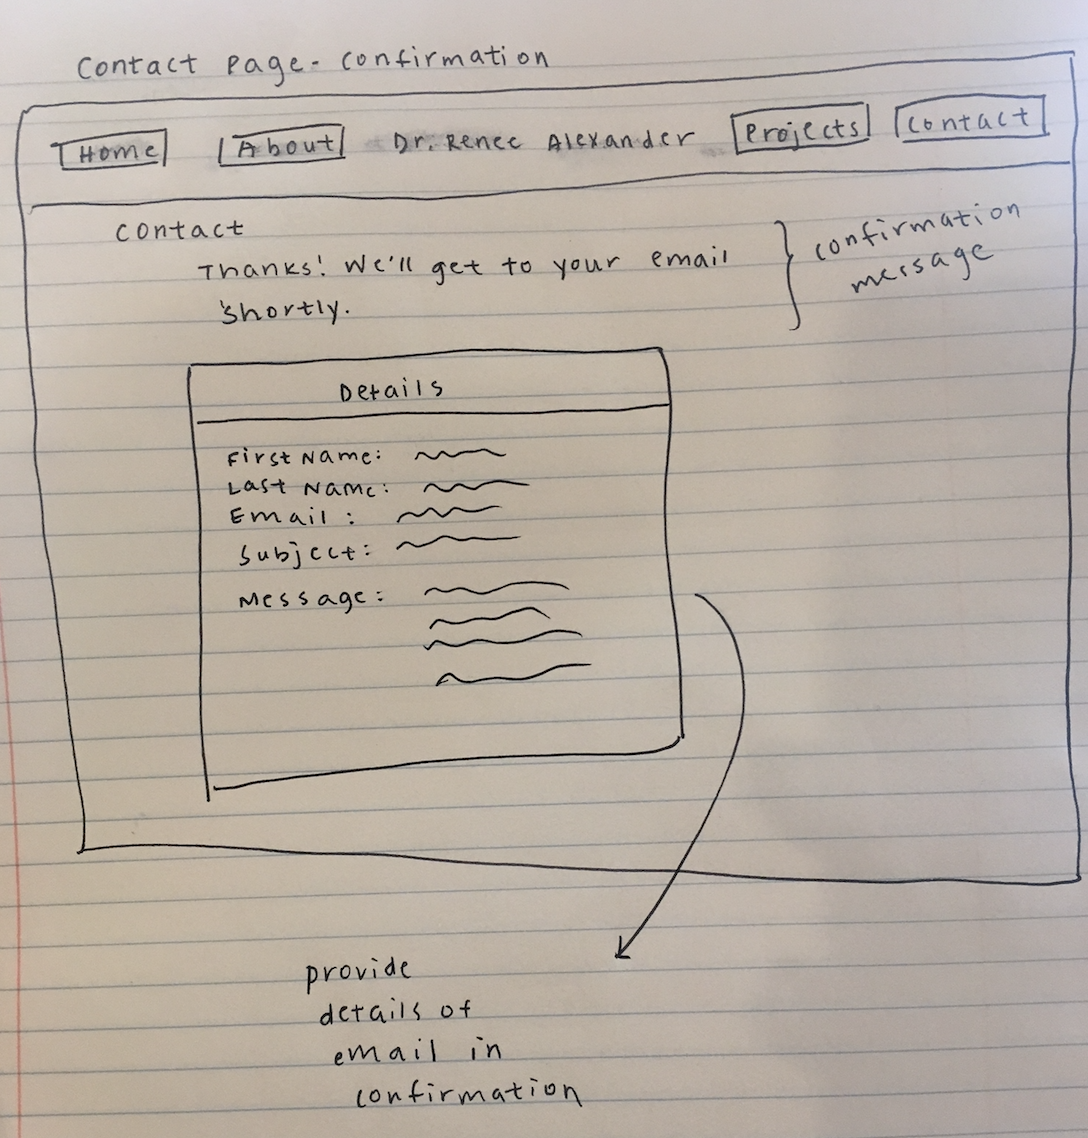 Contact Page - Confirmation
Home About Dr. Renee Alexander Projects Contact
Contact
Thanks! We'll get to your email
shortly.
confirmation
message
Details
First Name:
Last Name:
Email :
Subject:
Message:
provide
details of
email in
confirmation